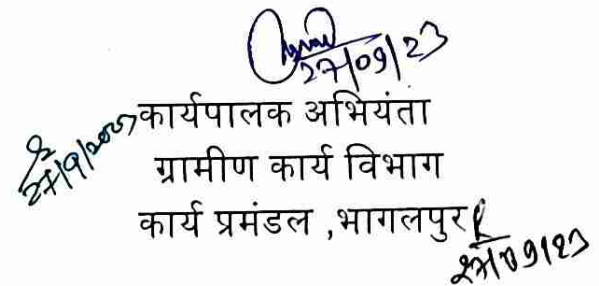 27/09/23
कार्यपालक अभियंता
ग्रामीण कार्य विभाग
कार्य प्रमंडल ,भागलपुर
27/09/23